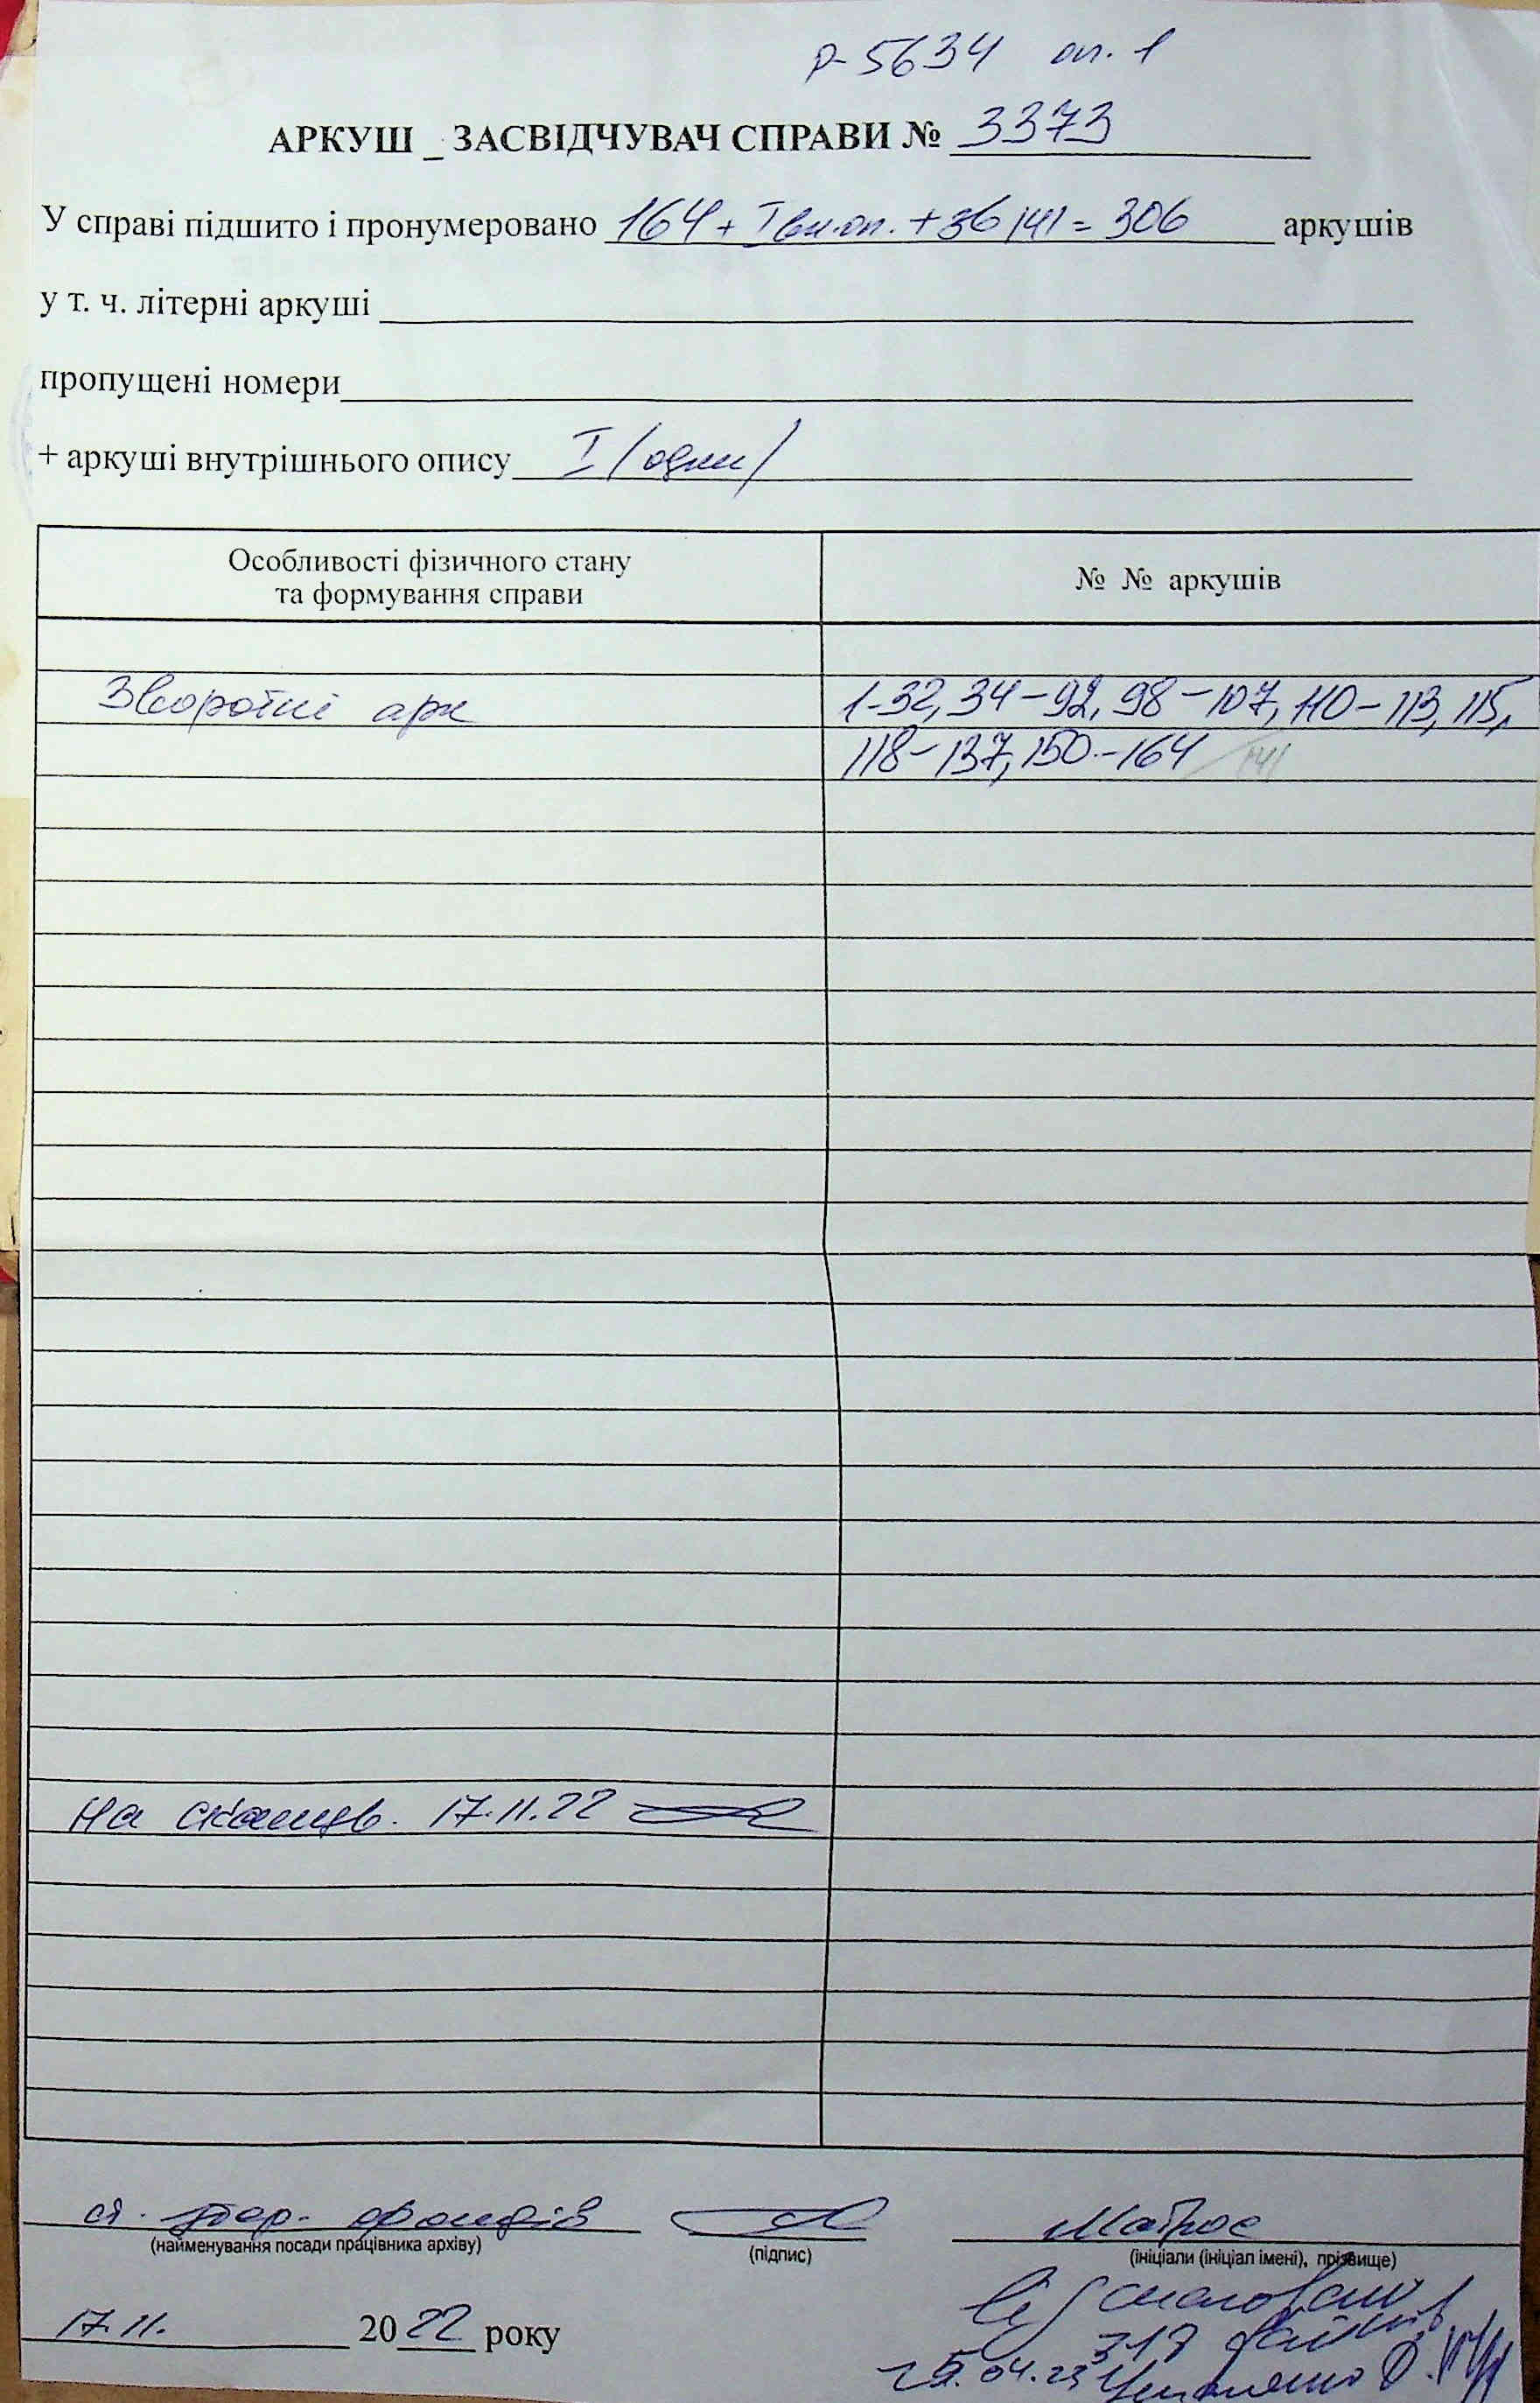 Р-5634 оп. 1
АРКУШ _ ЗАСВІДЧУВАЧ СПРАВИ № 3373
У справі підшито і пронумеровано 164 + I вн.оп. + зв 141 = 306 аркушів
у т. ч. літерні аркуші
пропущені номери
+ аркуші внутрішнього опису I /один/
Особливості фізичного стану
та формування справи
№ № аркушів
Зворотні арк
1-32, 34-92, 98-107, 110-113, 115,
118-137, 150-164 141
На сканув. 17.11.22
ст. збер. фондів
Матрос
(найменування посади працівника архіву)
(підпис)
(ініціали (ініціал імені), прізвище)
Відскановано
17.11. 2022 року
317 файлів
25.04.23